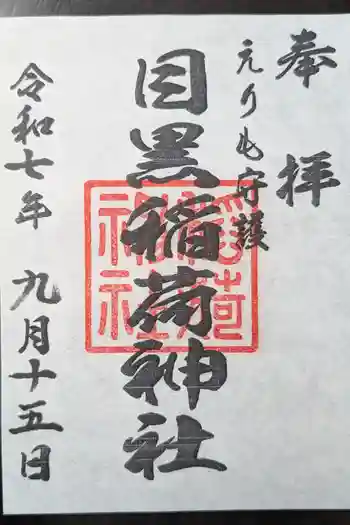 奉拝
えりも守護
目黒稲荷神社
令和七年 九月十五日